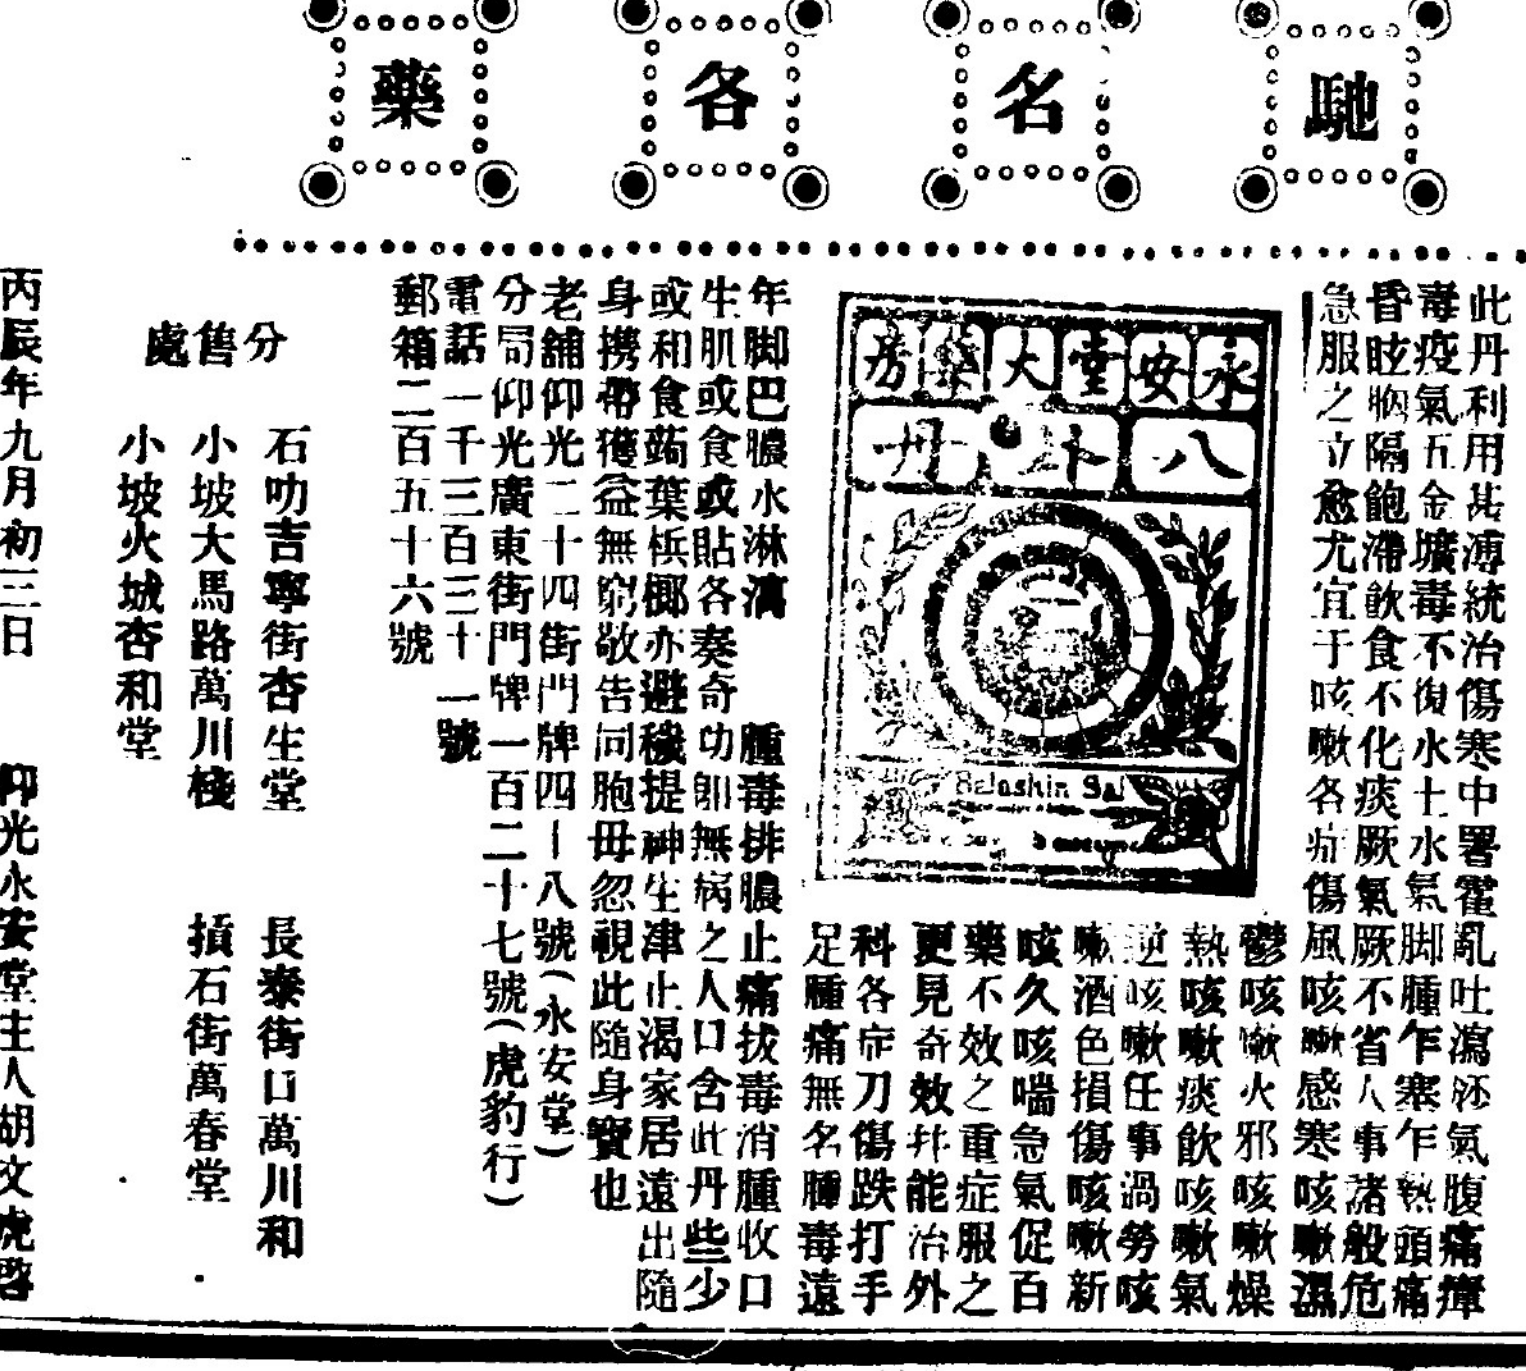 馳名各藥
此丹利用甚溥統治傷寒中署霍亂吐瀉疹氣腹痛瘴
毒疫氣五金壙毒不復水土水氣脚腫乍寒乍熱頭痛
昏眩胸隔飽滯飲食不化痰厥氣厥不省人事諸般危
急服之立愈尤宜于咳嗽各症傷風咳嗽感寒咳嗽濕
鬱咳嗽火邪咳嗽燥
熱咳嗽痰飲咳嗽氣
逆咳嗽任事過勞咳
嗽酒色損傷咳嗽新
咳久咳喘急氣促百
藥不效之重症服之
更見奇效并能治外
科各症刀傷跌打手
足腫痛無名腫毒遠
永安堂大藥房
八卦丹
Balashin Sal
年脚巴膿水淋漓 腫毒排膿止痛拔毒消腫收口
生肌或食或貼各奏奇功即無病之人口含此丹些少
或和食蒟葉檳榔亦避穢提神生津止渴家居遠出隨
身携帶獲益無窮敬告同胞毋忽視此隨身寶也
老舖仰光二十四街門牌四十八號(永安堂)
分局仰光廣東街門牌一百二十七號(虎豹行)
電話一千三百三十一號
郵箱二百五十六號
分售處
石叻吉寧街杏生堂 長泰街口萬川和
小坡大馬路萬川棧 擯石街萬春堂
小坡火城杏和堂
丙辰年九月初三日 仰光永安堂主人胡文虎啓